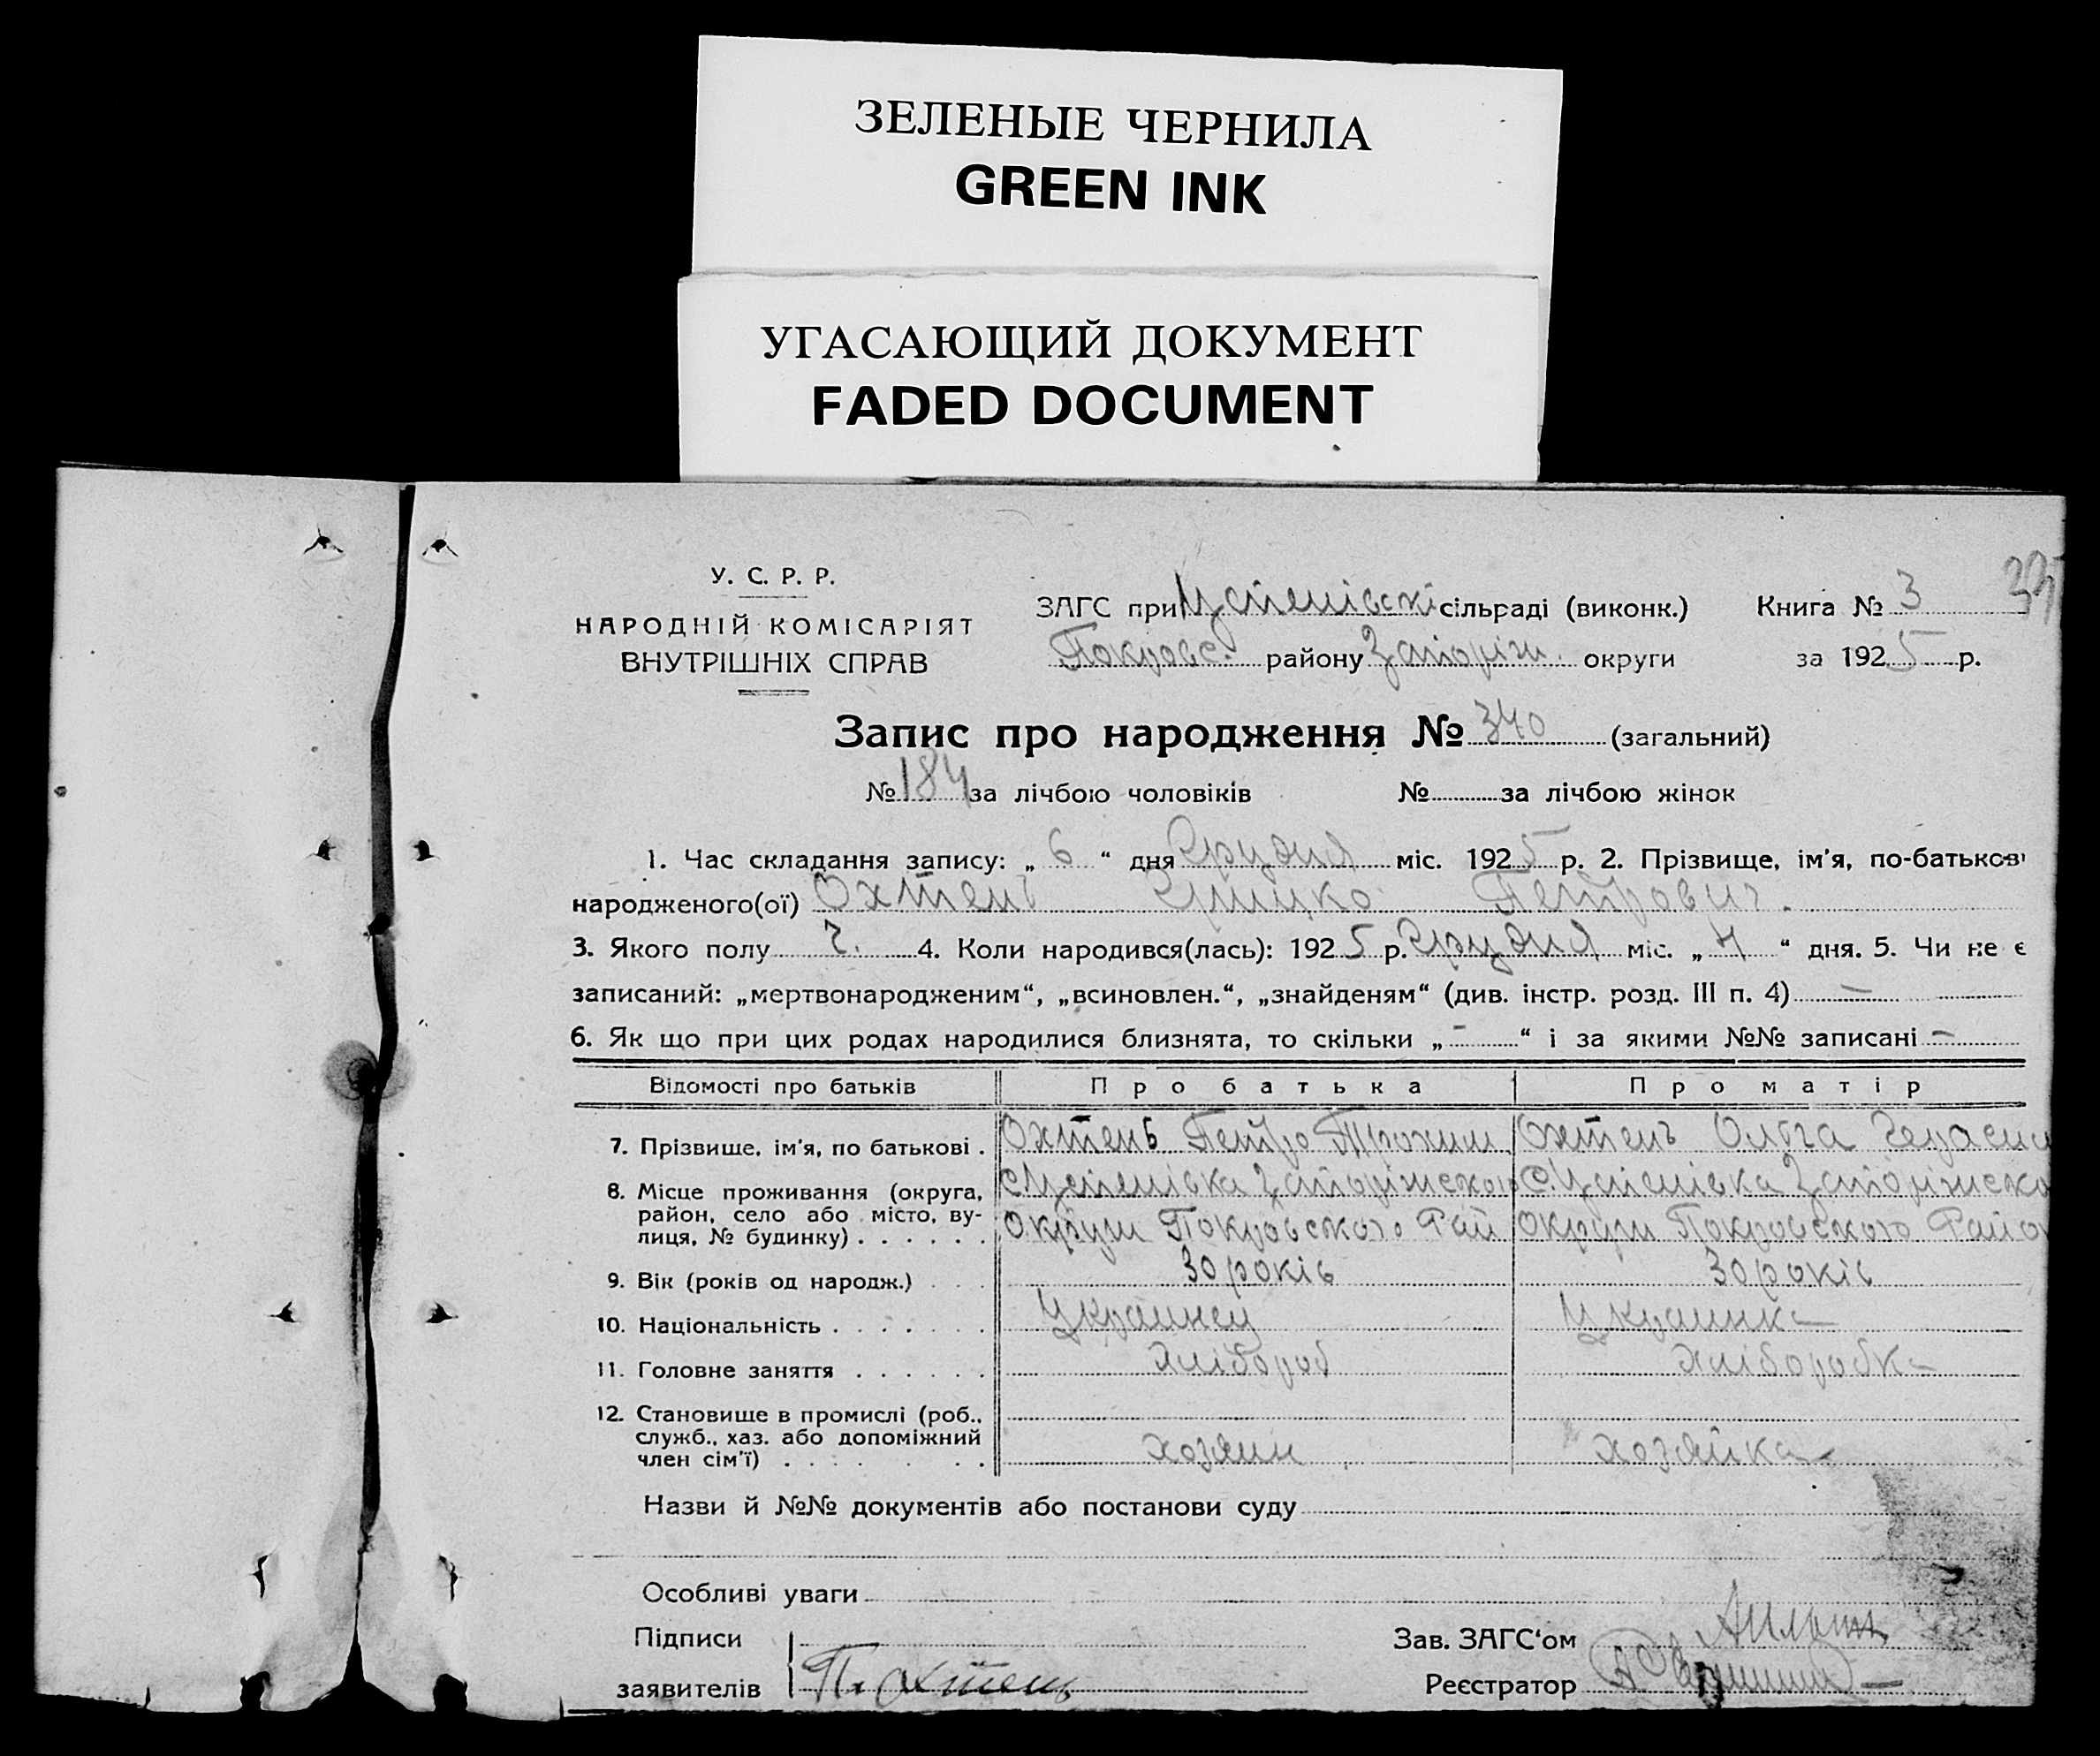 ЗЕЛЕНЫЕ ЧЕРНИЛА
GREEN INK
УГАСАЮЩИЙ ДОКУМЕНТ
FADED DOCUMENT
У. С. Р. Р.
НАРОДНІЙ КОМІСАРІЯТ
ВНУТРІШНІХ СПРАВ
ЗАГС при Успенівскі сільраді (виконк.) Книга № 3
Покровс. району Запоріж. округи за 1925 р.
Запис про народження № 340 (загальний)
№ 184 за лічбою чоловіків № за лічбою жінок
1. Час складання запису: „ 6 “ дня Грудня міс. 1925 р. 2. Прізвище, ім'я, по-батькові
народженого(ої) Охтень Грицко Петрович.
3. Якого полу ч. 4. Коли народився(лась): 1925 р. Грудня міс. „ 4 “ дня. 5. Чи не є
записаний: „мертвонародженим“, „всиновлен.“, „знайденям“ (див. інстр. розд. III п. 4) —
6. Як що при цих родах народилися близнята, то скільки „ - “ і за якими №№ записані —
Відомості про батьків Про батька Про матір
7. Прізвище, ім'я, по батькові . Охтень Петро Трохим Охтень Ольга Герасим
8. Місце проживання (округа, район, село або місто, вулиця, № будинку) . . . . . .
с. Успенівка Запоріжскою с. Успенівка Запоріжско
Округи Покровского Рай Округи Покровского Район
9. Вік (років од народж.) . . . 30 років 30 років
10. Національність . . . . . . . Украинец Украинка
11. Головне заняття . . . . . . хлібороб хліборобка
12. Становище в промислі (роб., служб., хаз. або допоміжний член сім'ї) . . . . . . хозяин хозяйка
Назви й №№ документів або постанови суду
Особливі уваги
Підписи
заявителів П. Охтень
Зав. ЗАГС‘ом
Реєстратор